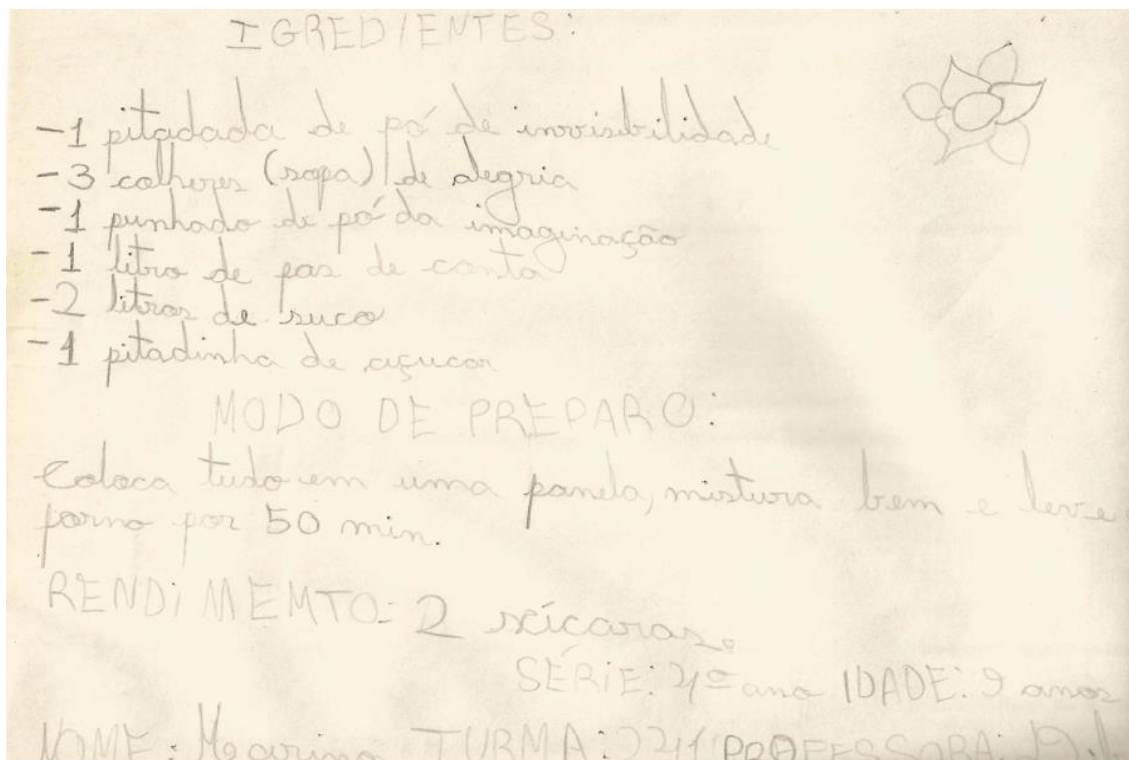 IGREDIENTES:
-1 pitadada de pó de invisibilidade
-3 colheres (sopa) de alegria
-1 punhado de pó da imaginação
-1 litro de faz de conta
-2 litros de suco
-1 pitadinha de açucar
MODO DE PREPARO:
Coloca tudo em uma panela, mistura bem e leve
forno por 50 min.
RENDIMEMTO: 2 xícaras.
SÉRIE: 4º ano IDADE: 9 anos
NOME: TURMA: 241 PROFESSORA: